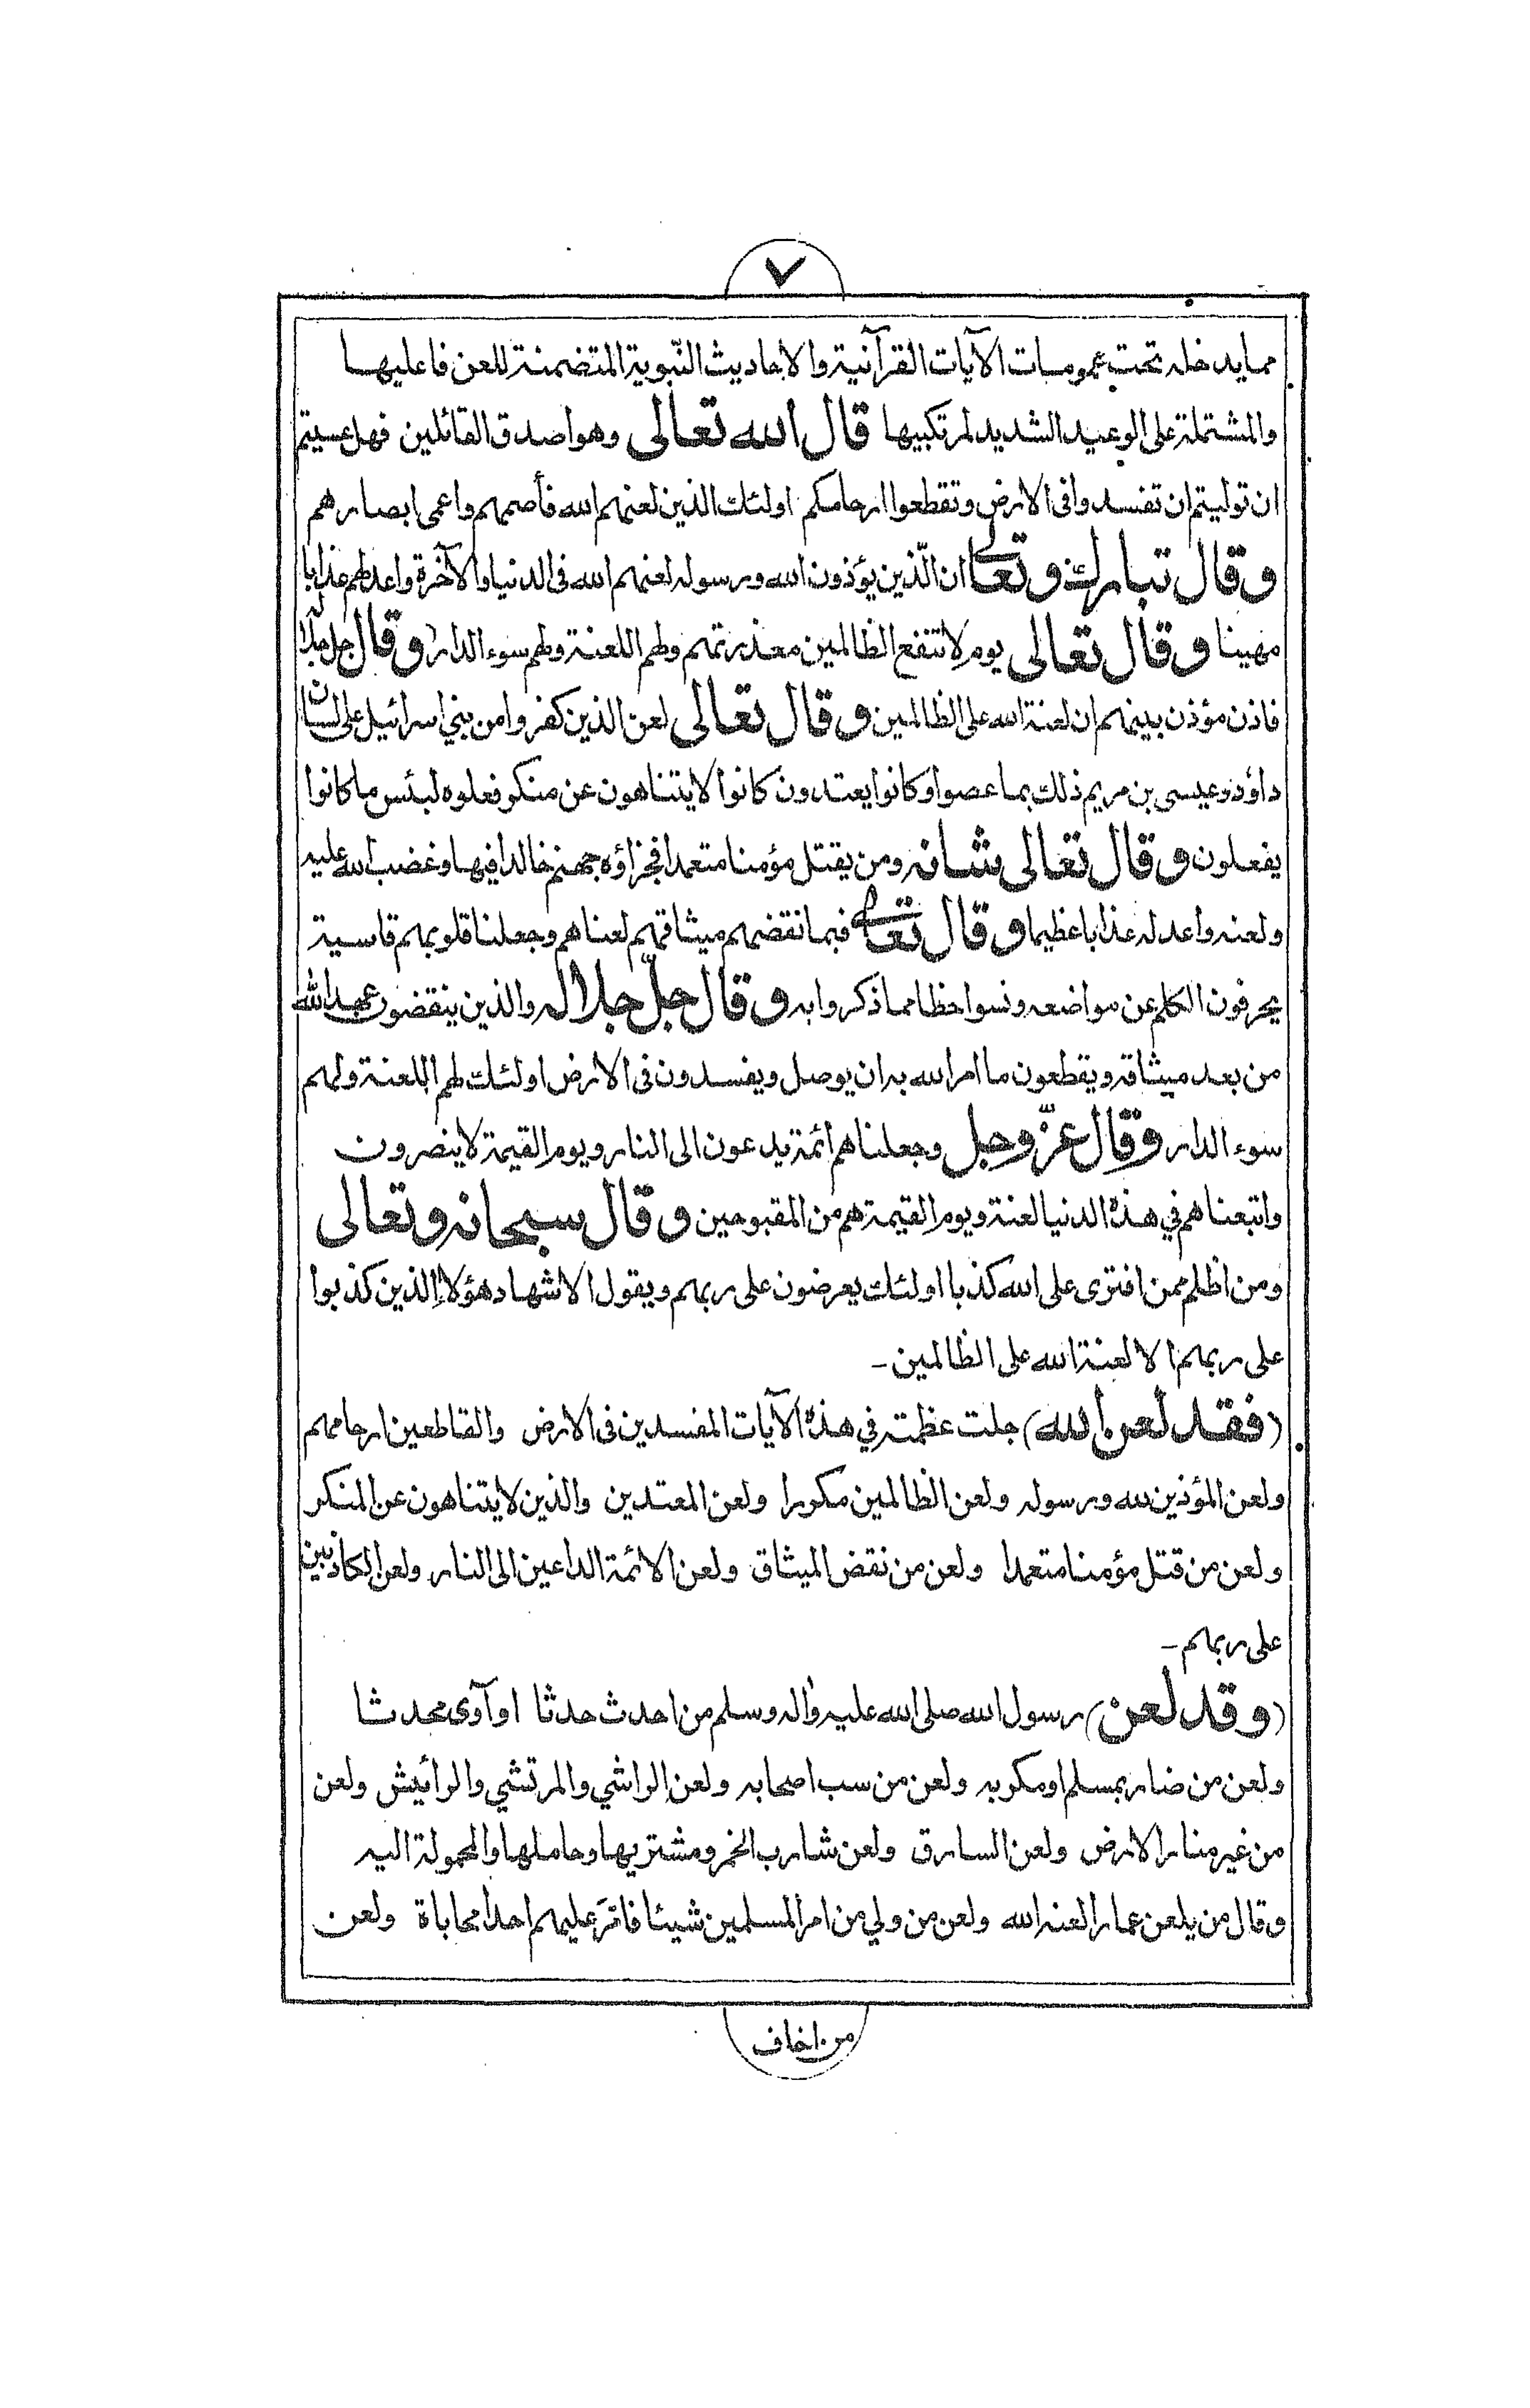 ٧
مما يدخله تحت عمومات الآيات القرآنية والاحاديث النّبوية المتضمنة للعن فاعليها
والمشتملة على الوعيد الشديد لمرتكبيها قال الله تعالى وهو اصدق القائلين فهل عسيتم
ان توليتم ان تفسدوا فى الارض وتقطعوا ارحامكم اولئك الذين لعنهم الله فأصمهم واعمى ابصارهم
وقال تبارك وتعالى ان الّذين يؤذون الله ورسوله لعنهم الله فى الدنيا والآخرة واعد لهم عذابا
مهينا وقال تعالى يوم لا تنفع الظالمين معذرتهم ولهم اللعنة ولهم سوء الدار وقال جل جلاله
فاذن مؤذن بينهم ان لعنة الله على الظالمين وقال تعالى لعن الذين كفروا من بني اسرائيل على لسان
داؤد وعيسى بن مريم ذلك بما عصوا وكانوا يعتدون كانوا لا يتناهون عن منكر فعلوه لبئس ما كانوا
يفعلون وقال تعالى شانه ومن يقتل مؤمنا متعمدا فجزاؤه جهنم خالدا فيها وغضب الله عليه
ولعنه واعد له عذابا عظيما وقال تعالى فبما نقضهم ميثاقهم لعناهم وجعلنا قلوبهم قاسية
يحرفون الكلم عن مواضعه ونسوا حظا مما ذكروا به وقال جلّ جلاله والذين ينقضون عهد الله
من بعد ميثاقه ويقطعون ما امر الله به ان يوصل ويفسدون فى الارض اولئك لهم اللعنة ولهم
سوء الدار وقال عزّ وجل وجعلناهم ائمة يدعون الى النار ويوم القيمة لا ينصرون
واتبعناهم في هذه الدنيا لعنة ويوم القيمة هم من المقبوحين وقال سبحانه وتعالى
ومن اظلم ممن افترى على الله كذبا اولئك يعرضون على ربهم ويقول الاشهاد هؤلاء الذين كذبوا
على ربهم الا لعنة الله على الظالمين -
(فقد لعن الله) جلت عظمته في هذه الآيات المفسدين فى الارض والقاطعين ارحامهم
ولعن المؤذين لله ورسوله ولعن الظالمين مكررا ولعن المعتدين والذين لا يتناهون عن المنكر
ولعن من قتل مؤمنا متعمدا ولعن من نقض الميثاق ولعن الائمة الداعين الى النار ولعن الكاذبين
على ربهم -
(وقد لعن) رسول الله صلى الله عليه واله وسلم من احدث حدثا او آوى محدثا
ولعن من ضار بمسلم او مكر به ولعن من سب اصحابه ولعن الراشي والمرتشي والرائيش ولعن
من غير منار الارض ولعن السارق ولعن شارب الخمر ومشتريها وحاملها والمحمولة اليه
وقال من يلعن عمارا لعنه الله ولعن من ولي من امر المسلمين شيئا فامّر عليهم احدا محاباة ولعن
من اخاف